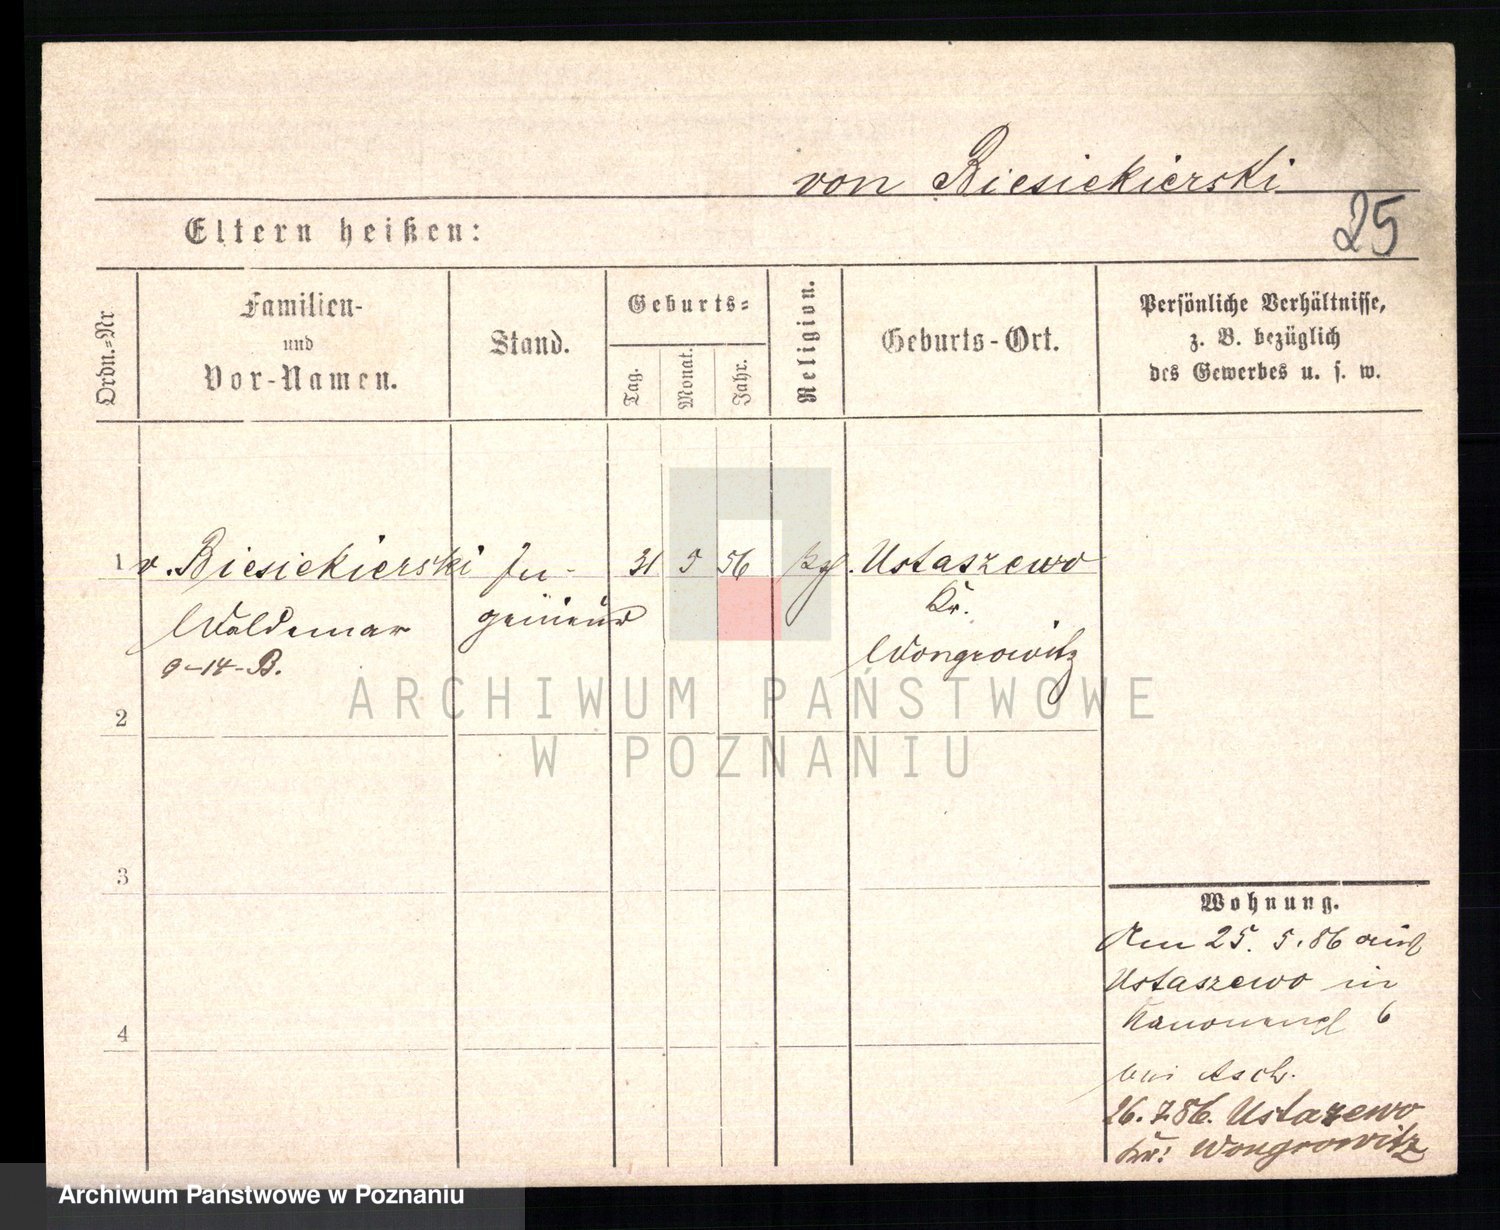 von Biesiekierski
25
Eltern heißen:
Ordn.=Nr
Familien-
und
Vor-Namen.
Stand.
Geburts=
Tag.
Monat.
Jahr.
Religion.
Geburts-Ort.
Persönliche Verhältnisse,
z. B. bezüglich
des Gewerbes u. s. w.
1 v. Biesiekierski In- 31 5 56 Ustaszewo
Kr.
Woldemar genieur
Wongrowitz
9-14-B.
2
3
4
Wohnung.
Am 25. 5. 86 aus
Ustaszewo in
Kanonenpl 6
bei Asch.
26. 7. 86. Ustazewo
Kr: Wongrowitz
ARCHIWUM PAŃSTWOWE
W POZNANIU
Archiwum Państwowe w Poznaniu